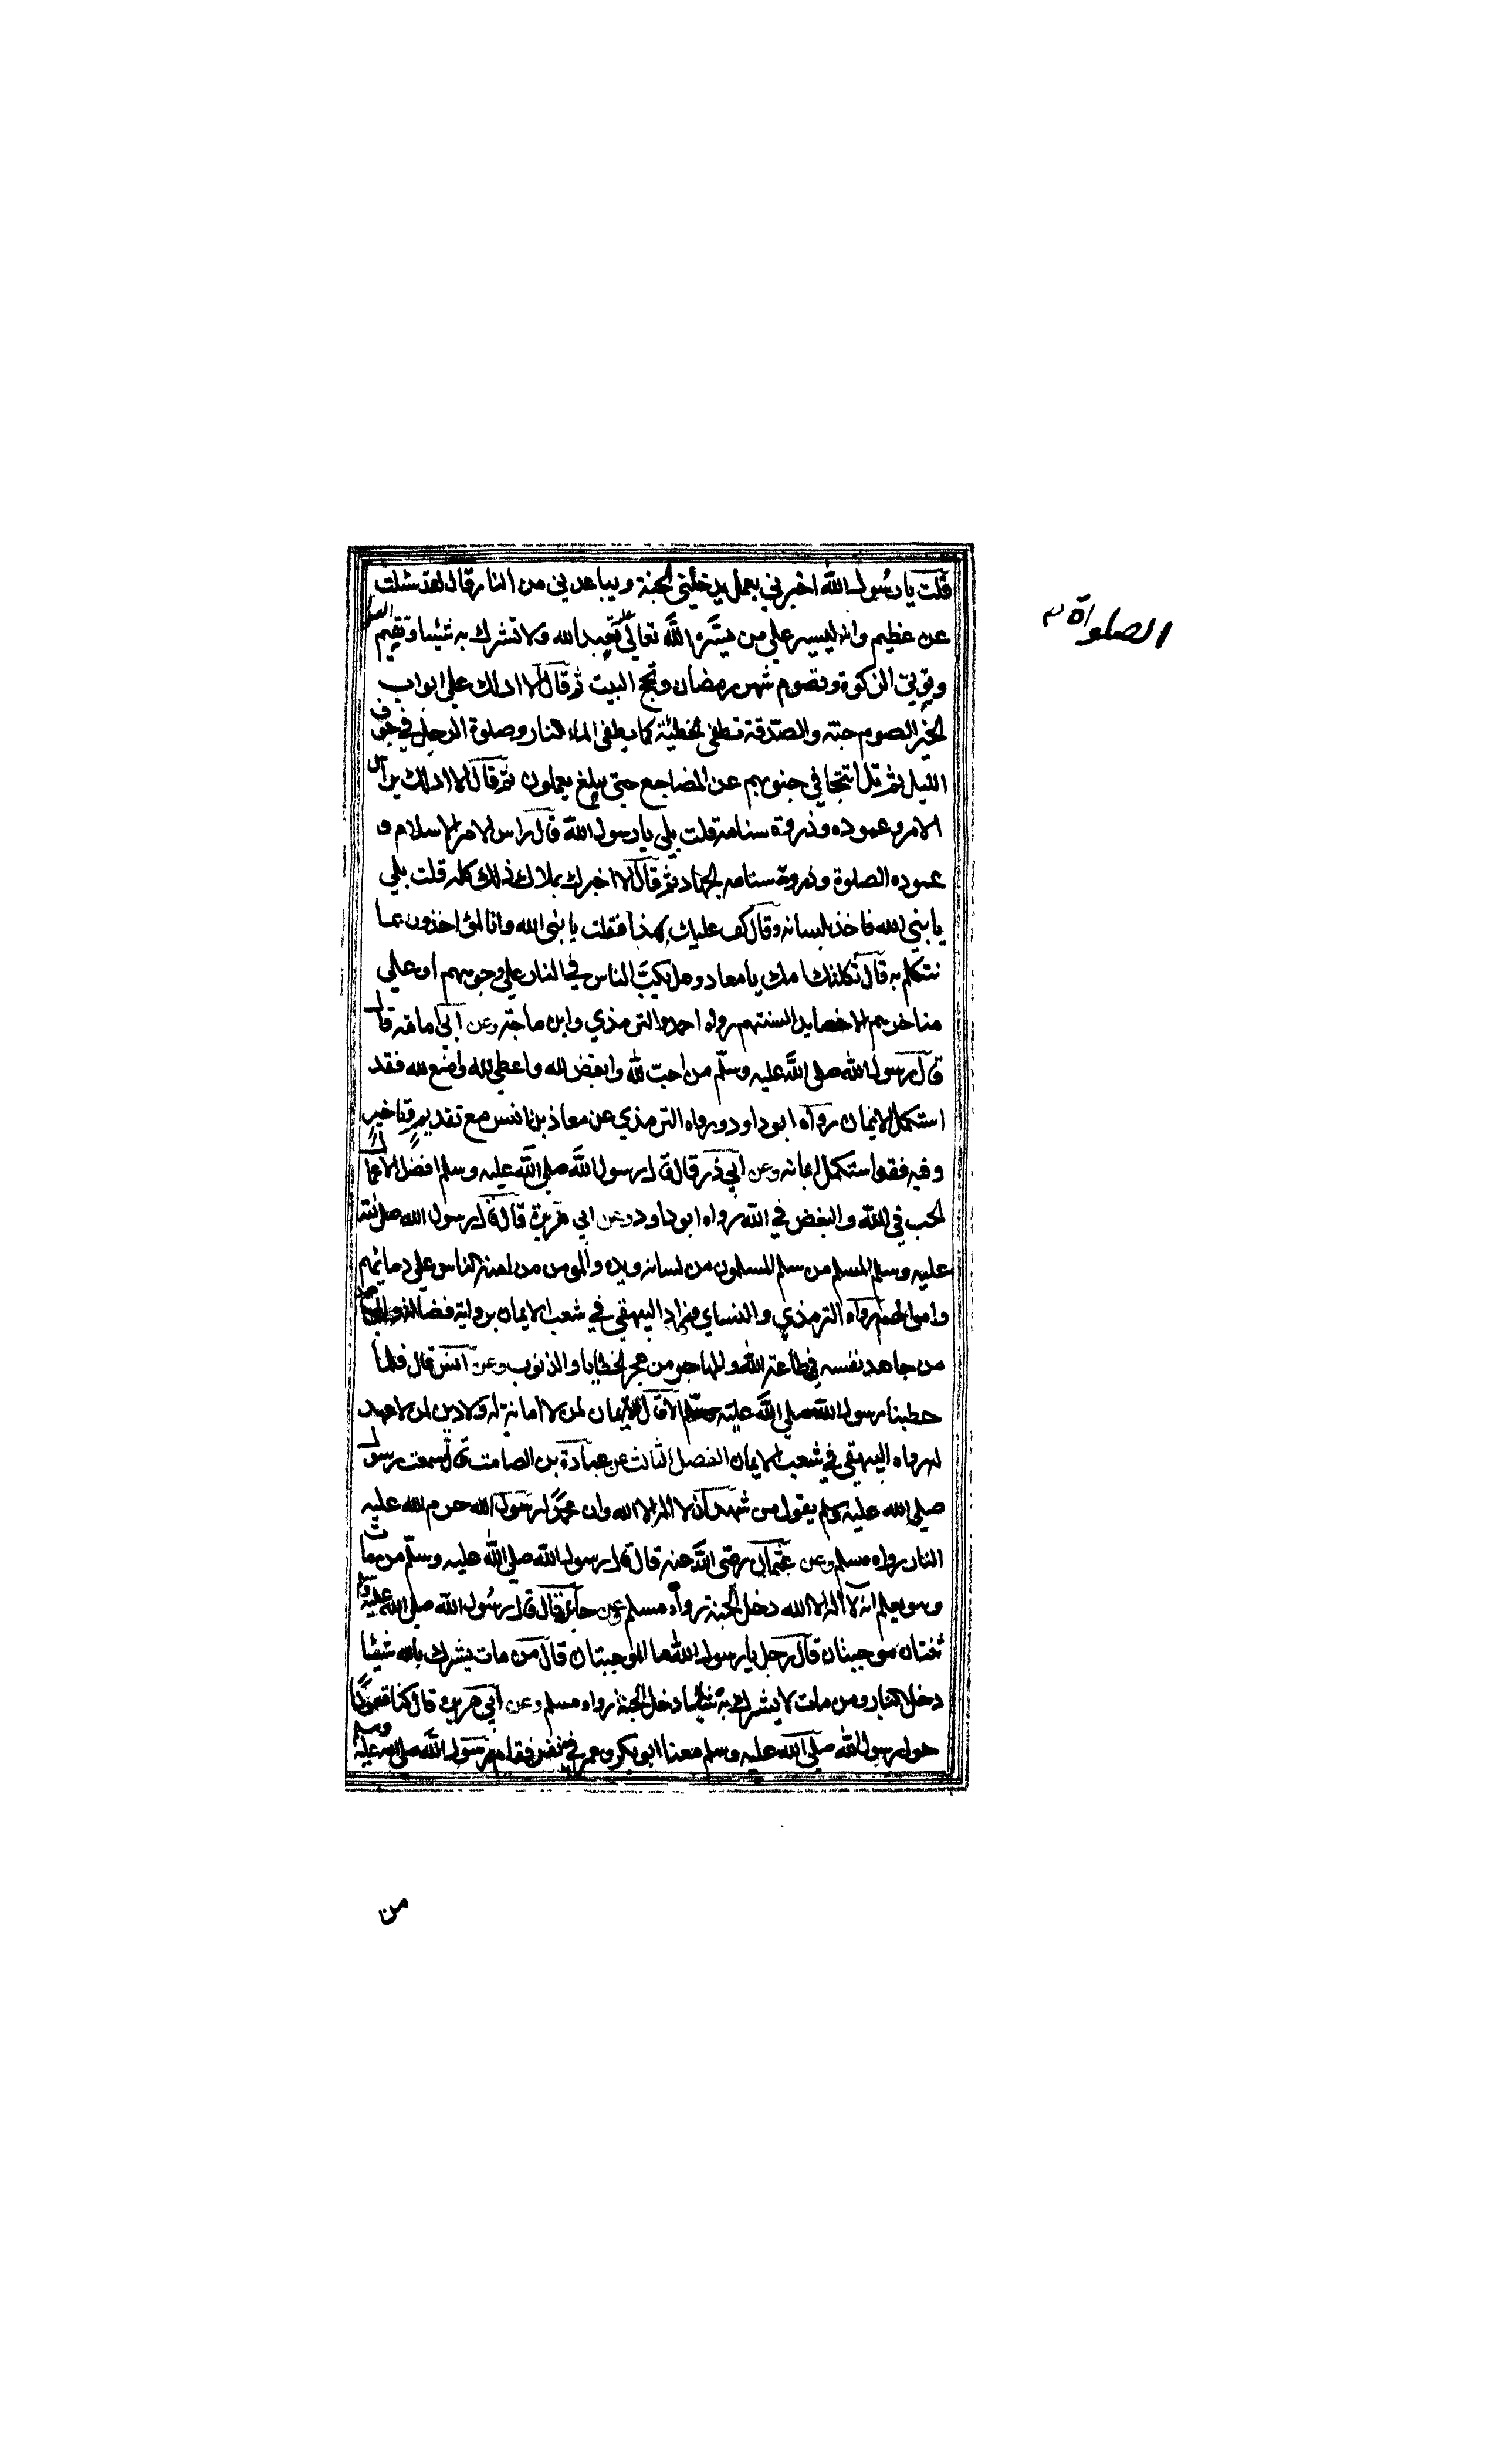 قلت يا رسول الله اخبرني بعمل يدخلني الجنة ويباعدني من النار قال لقد سئلت
عن عظيم وانه ليسير علي من يسّره الله تعالي عليه تعبد الله ولا تشرك به شيئا وتقيم الصلوٰة
الصلواة
وتوتي الزكوة وتصوم شهر رمضان وتحج البيت ثم قال الا ادلك علي ابواب
الخير الصوم جنة والصّدقة تطفئ الخطيئة كما يطفئ الماء النار وصلوة الرجل في جوف
الليل ثم تلا تتجافي جنوبهم عن المضاجع حتي بلغ يعملون ثم قال الا ادلك براس
الامر وعموده وذروة سنامه قلت بلي يا رسول الله قال راس الامر الاسلام و
عموده الصلوة وذروة سنامه الجهاد ثم قال الا اخبرك بملاك ذلك كله قلت بلي
يا نبي الله فاخذ بلسانه وقال كف عليك هذا فقلت يا نبي الله وانا لمؤاخذون بما
نتكلم به قال ثكلتك امك يا معاد وهل يكبّ الناس في النار علي وجوههم او علي
مناخرهم الا حصايد السنتهم رواه احمد والترمذي وابن ماجة وعن ابي امامة قال
قال رسول الله صلي الله عليه وسلّم من احبّ لله وابغض لله واعطي لله ومنع لله فقد
استكمل الايمان رواه ابو داود ورواه الترمذي عن معاذ بن انس مع تقديم وتاخير
وفيه فقد استكمل ايمانه وعن ابي ذر قال قال رسول الله صلي الله عليه وسلم افضل الاعمال
الحب في الله والبغض في الله رواه ابو داود وعن ابي هريرة قال قال رسول الله صلي الله
عليه وسلم المسلم من سلم المسلمون من لسانه ويده والمومن من امنه الناس علي دمائهم
واموالهم رواه الترمذي والنساي وزاد البيهقي في شعب الايمان برواية فضالة والمجاهد
من جاهد نفسه في طاعة الله والمهاجر من هجر الخطايا والذنوب وعن انس قال قلما
خطبنا رسول الله صلي الله عليه وسلّم الا قال لا ايمان لمن لا امانة له ولا دين لمن لا عهد
له رواه البيهقي في شعب الايمان الفصل الثالث عن عبادة بن الصامت قال سمعت رسول
صلي الله عليه وسلم يقول من شهد ان لا اله الا الله وان محمدًا رسول الله حرم الله عليه
النار رواه مسلم وعن عثمان رضي الله عنه قال قال رسول الله صلي الله عليه وسلّم من مات
وهو يعلم انه لا اله الا الله دخل الجنة رواه مسلم وعن جابر قال قال رسُول الله صلي الله عليه وسلم
ثنتان موجبتان قال رجل يا رسول الله ما الموجبتان قال من مات يشرك بالله شيئا
دخل النار ومن مات لا يشرك به شيئا دخل الجنة رواه مسلم وعن ابي هريرة قال كنا قعودًا
حول رسول الله صلي الله عليه وسلم معنا ابو بكر وعمر في نفر فقام رسول الله صلي الله عليه وسلم
من